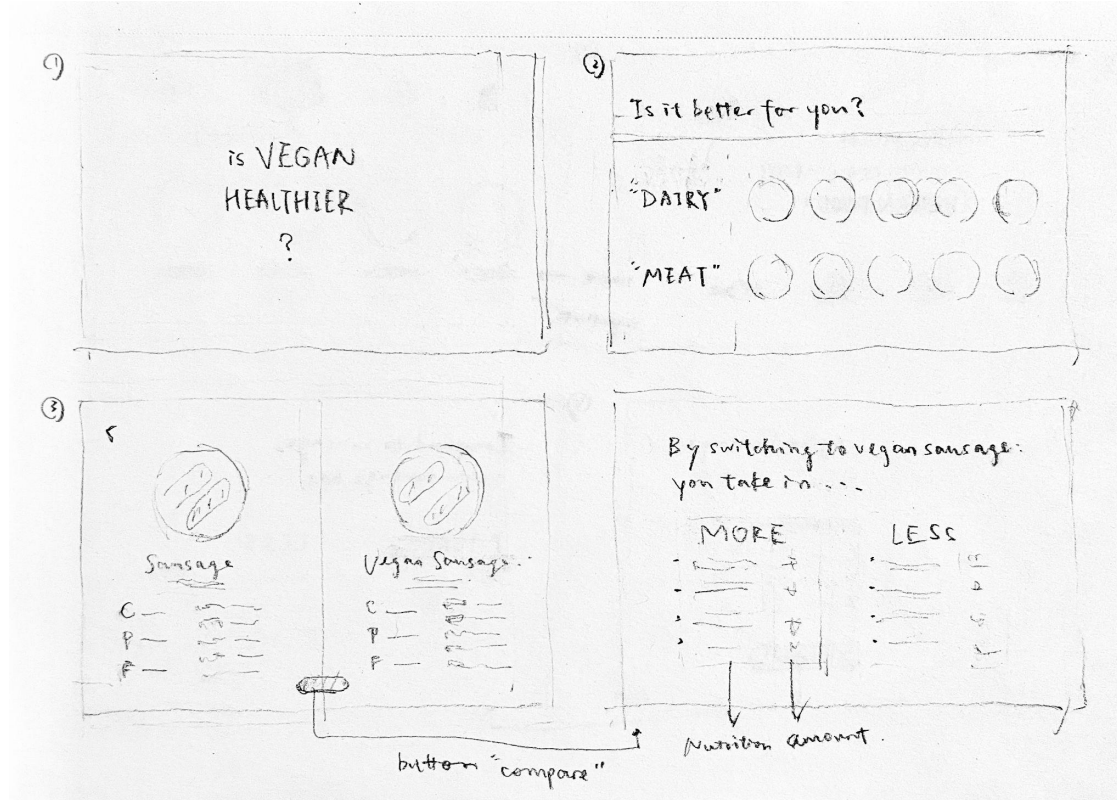 1
is VEGAN
HEALTHIER
?
2
Is it better for you?
"DAIRY"
"MEAT"
3
Sausage
C
P
F
Vegan Sausage.
C
P
F
button "compare"
By switching to vegan sausage:
you take in...
MORE LESS
Nutrition amount.